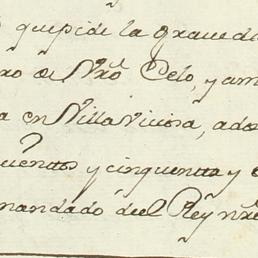 que pide la graveda
ro de Nrõ. Celo, y am
a en Villa Viciosa, a do
uentos y cinquenta y
mandado del Rey nro